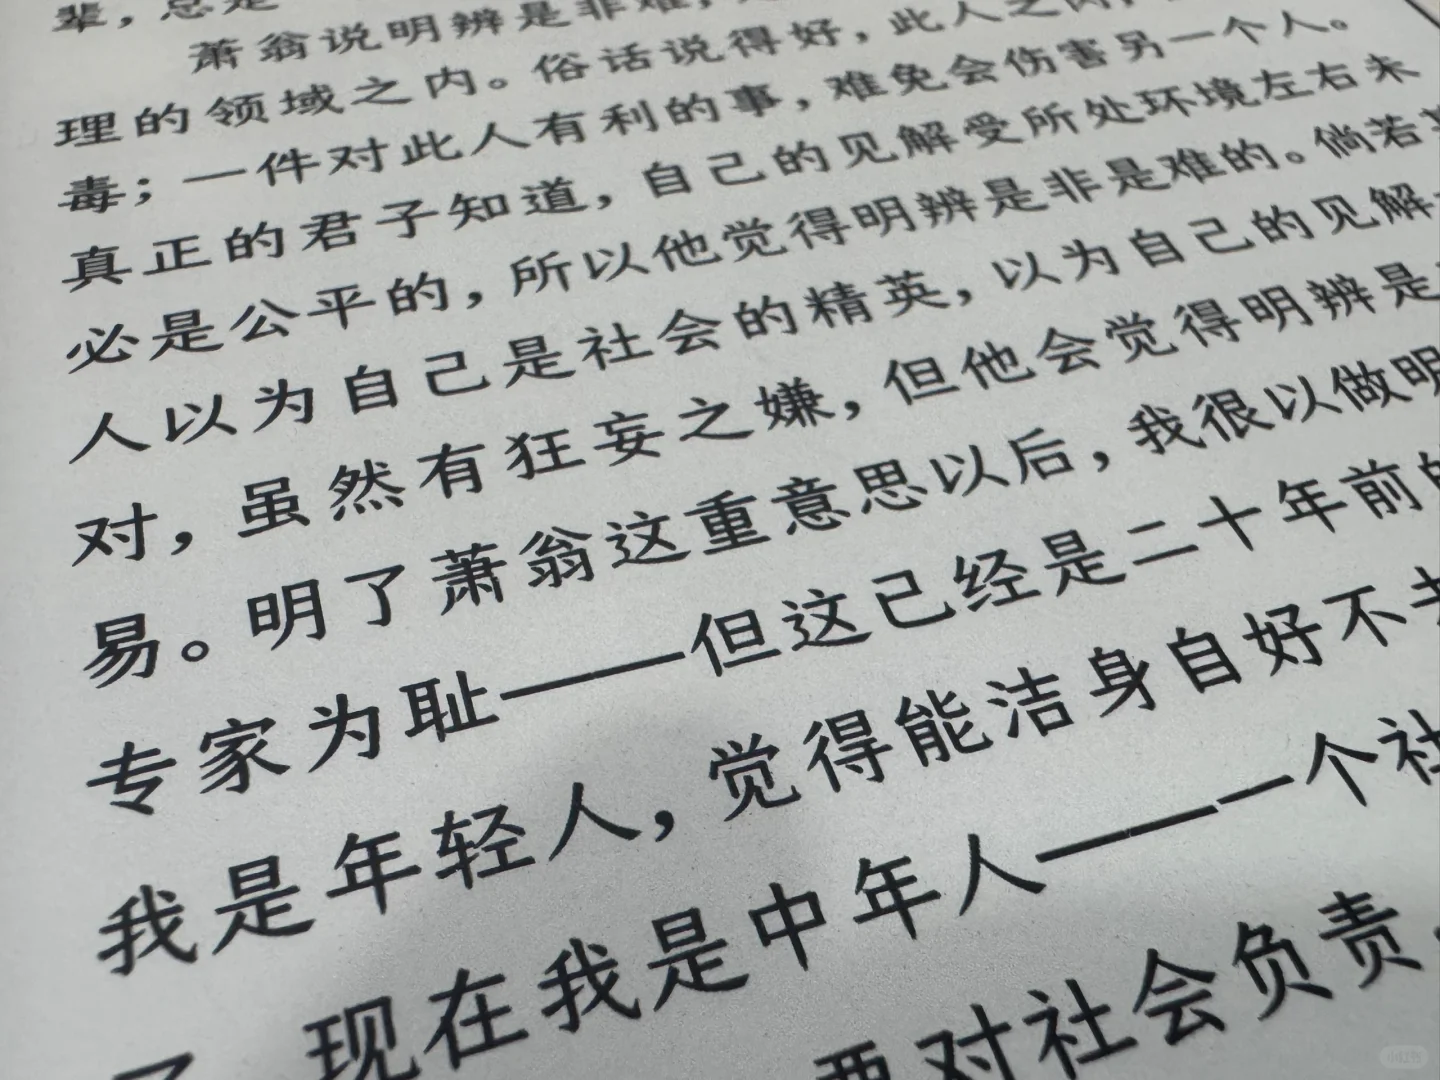 辈，总是
萧翁说明辨是非难，
理的领域之内。俗话说得好，此人之肉，
毒；一件对此人有利的事，难免会伤害另一个人。
真正的君子知道，自己的见解受所处环境左右未
必是公平的，所以他觉得明辨是非是难的。倘若某
人以为自己是社会的精英，以为自己的见解
对，虽然有狂妄之嫌，但他会觉得明辨是
易。明了萧翁这重意思以后，我很以做明
专家为耻——但这已经是二十年前的
我是年轻人，觉得能洁身自好不去
了，现在我是中年人——一个社
要对社会负责，
小红书